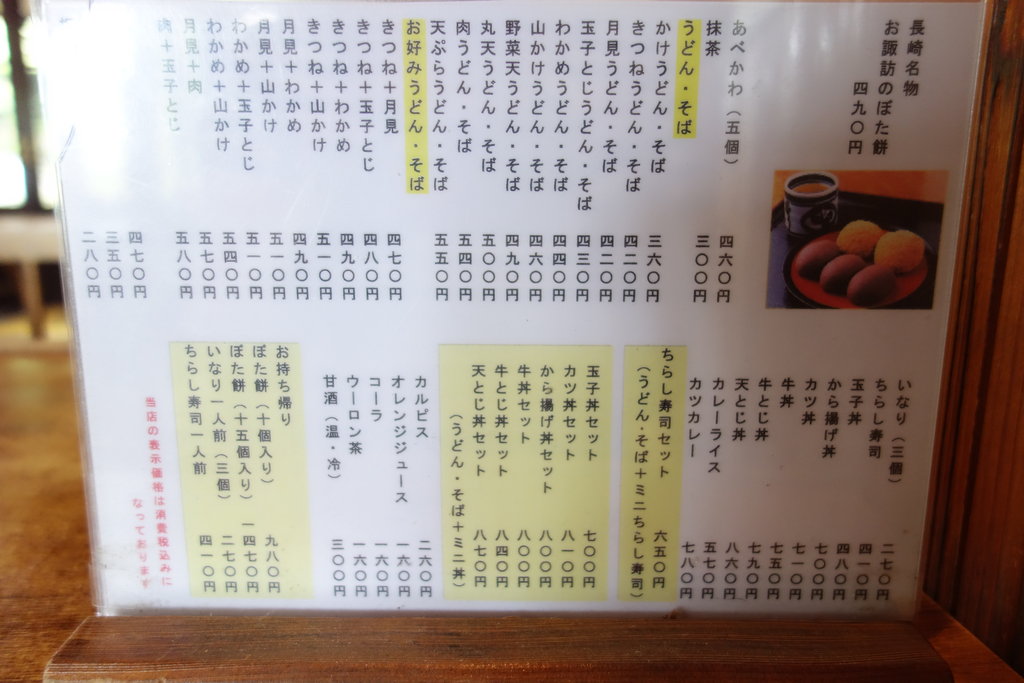 長崎名物
お諏訪のぼた餅
四九〇円
あべかわ（五個） 四六〇円
抹茶 三〇〇円
うどん・そば
かけうどん・そば 三六〇円
きつねうどん・そば 四二〇円
月見うどん・そば 四二〇円
玉子とじうどん・そば 四三〇円
わかめうどん・そば 四四〇円
山かけうどん・そば 四六〇円
野菜天うどん・そば 四九〇円
丸天うどん・そば 五〇〇円
肉うどん・そば 五四〇円
天ぷらうどん・そば 五五〇円
お好みうどん・そば
きつね＋月見 四七〇円
きつね＋玉子とじ 四八〇円
きつね＋わかめ 四九〇円
きつね＋山かけ 五一〇円
月見＋わかめ 四九〇円
月見＋山かけ 五一〇円
わかめ＋玉子とじ 五一〇円
わかめ＋山かけ 五四〇円
月見＋肉 五七〇円
肉＋玉子とじ 五八〇円
四七〇円
三五〇円
二八〇円
いなり（三個） 二七〇円
ちらし寿司 四一〇円
玉子丼 四八〇円
から揚げ丼 七〇〇円
カツ丼 七一〇円
牛丼 七五〇円
牛とじ丼 七九〇円
天とじ丼 八六〇円
カレーライス 五七〇円
カツカレー 七八〇円
ちらし寿司セット 六五〇円
（うどん・そば＋ミニちらし寿司）
玉子丼セット 七〇〇円
カツ丼セット 八一〇円
から揚げ丼セット 八〇〇円
牛丼セット 八〇〇円
牛とじ丼セット 八四〇円
天とじ丼セット 八七〇円
（うどん・そば＋ミニ丼）
カルピス 二六〇円
オレンジジュース 一六〇円
コーラ 一六〇円
ウーロン茶 一六〇円
甘酒（温・冷） 三〇〇円
お持ち帰り
ぼた餅（十個入り） 九八〇円
ぼた餅（十五個入り） 一四七〇円
いなり一人前（三個） 二七〇円
ちらし寿司一人前 四一〇円
当店の表示価格は消費税込みに
なっております